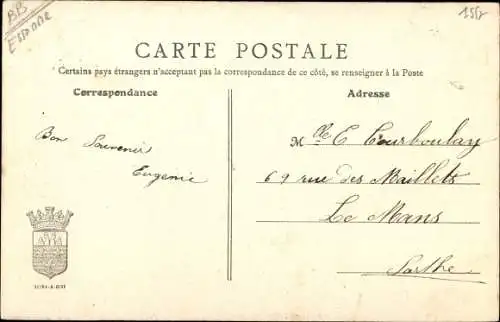 BB
Espagne
155
CARTE POSTALE
Certains pays étrangers n'acceptant pas la correspondance de ce côté, se renseigner à la Poste
Correspondance
Adresse
Bon Souvenir
Eugenie
Mlle E Courboulay
69 rue des Maillets
Le Mans
Sarthe